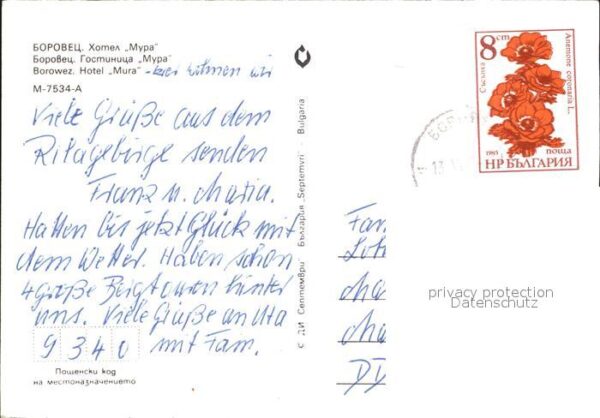 БОРОВЕЦ. Хотел „Мура"
Боровец. Гостиница „Мура"
Borowez. Hotel „Mura" - hier wohnen wir
М-7534-А
Viele Grüße aus dem
Rilagebirge senden
Franz u. Maria.
Hatten bis jetzt Glück mit
dem Wetter. Haben schon
4 große Bergtouren hinter
uns. Viele Grüße an Uta
mit Fam.
9 3 4 0
Пощенски код
на местоназначението
© ДИ „Септември" България „Septemvri" Bulgaria
8 ст
Съсънка
Anemone coronaria L.
1985 поща
НР БЪЛГАРИЯ
13
Fam
privacy protection
Datenschutz